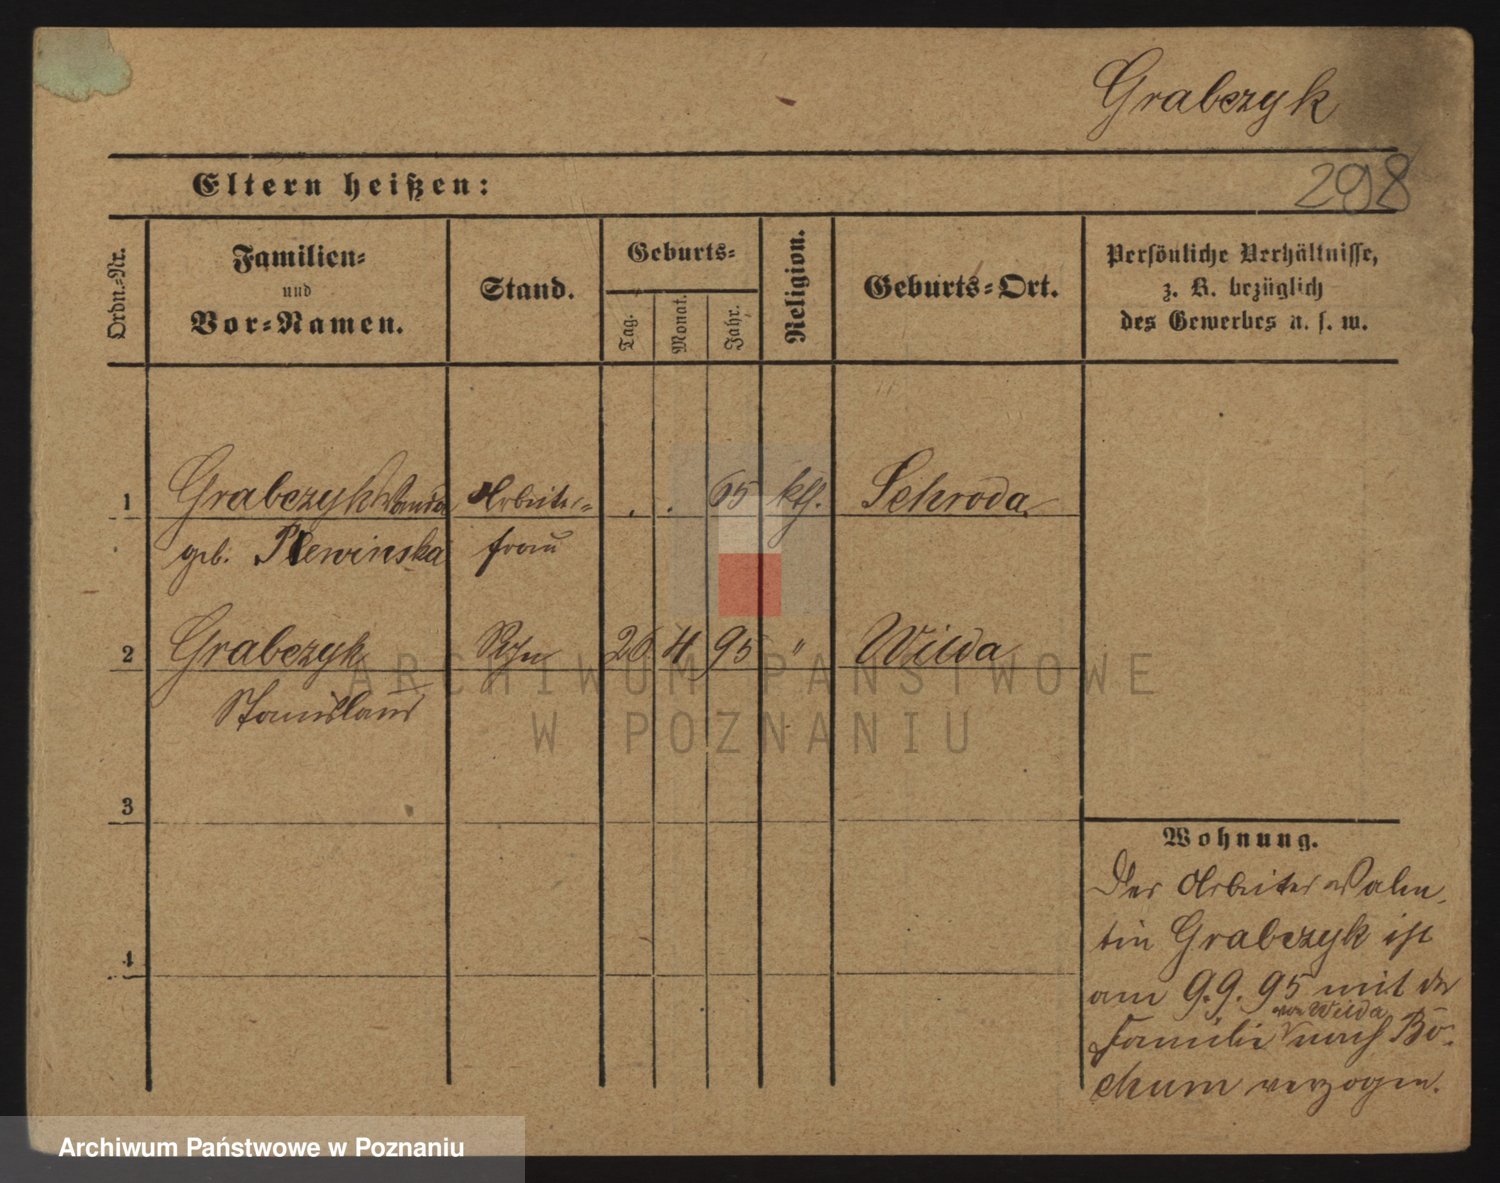 Grabczyk
298
Eltern heißen:
Ordn.-Nr.
Familien-
und
Vor-Namen.
Stand.
Geburts-
Tag.
Monat.
Jahr.
Religion.
Geburts-Ort.
Persönliche Verhältnisse,
z. B. bezüglich
des Gewerbes u. s. w.
1 Grabczyk Wanda Arbeiter- . . 65 kth. Schroda
geb. Plewinska frau
2 Grabczyk Sohn 26 4 95 " Wilda
Stanislaus
3
4
Wohnung.
Der Arbeiter Valen
tin Grabczyk ist
am 9.9.95 mit der
von Wilda
Familie nach Bo-
chum verzogen.
ARCHIWUM PAŃSTWOWE
W POZNANIU
Archiwum Państwowe w Poznaniu